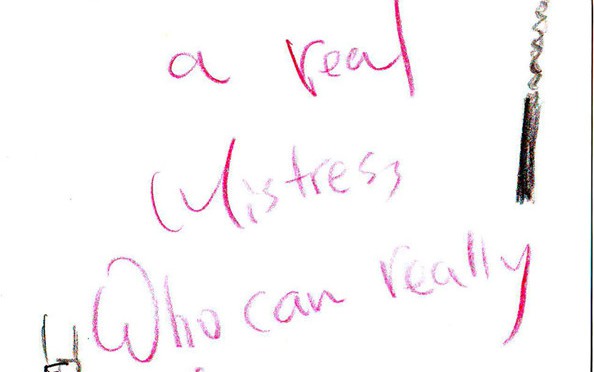 a real
Mistress
Who can really